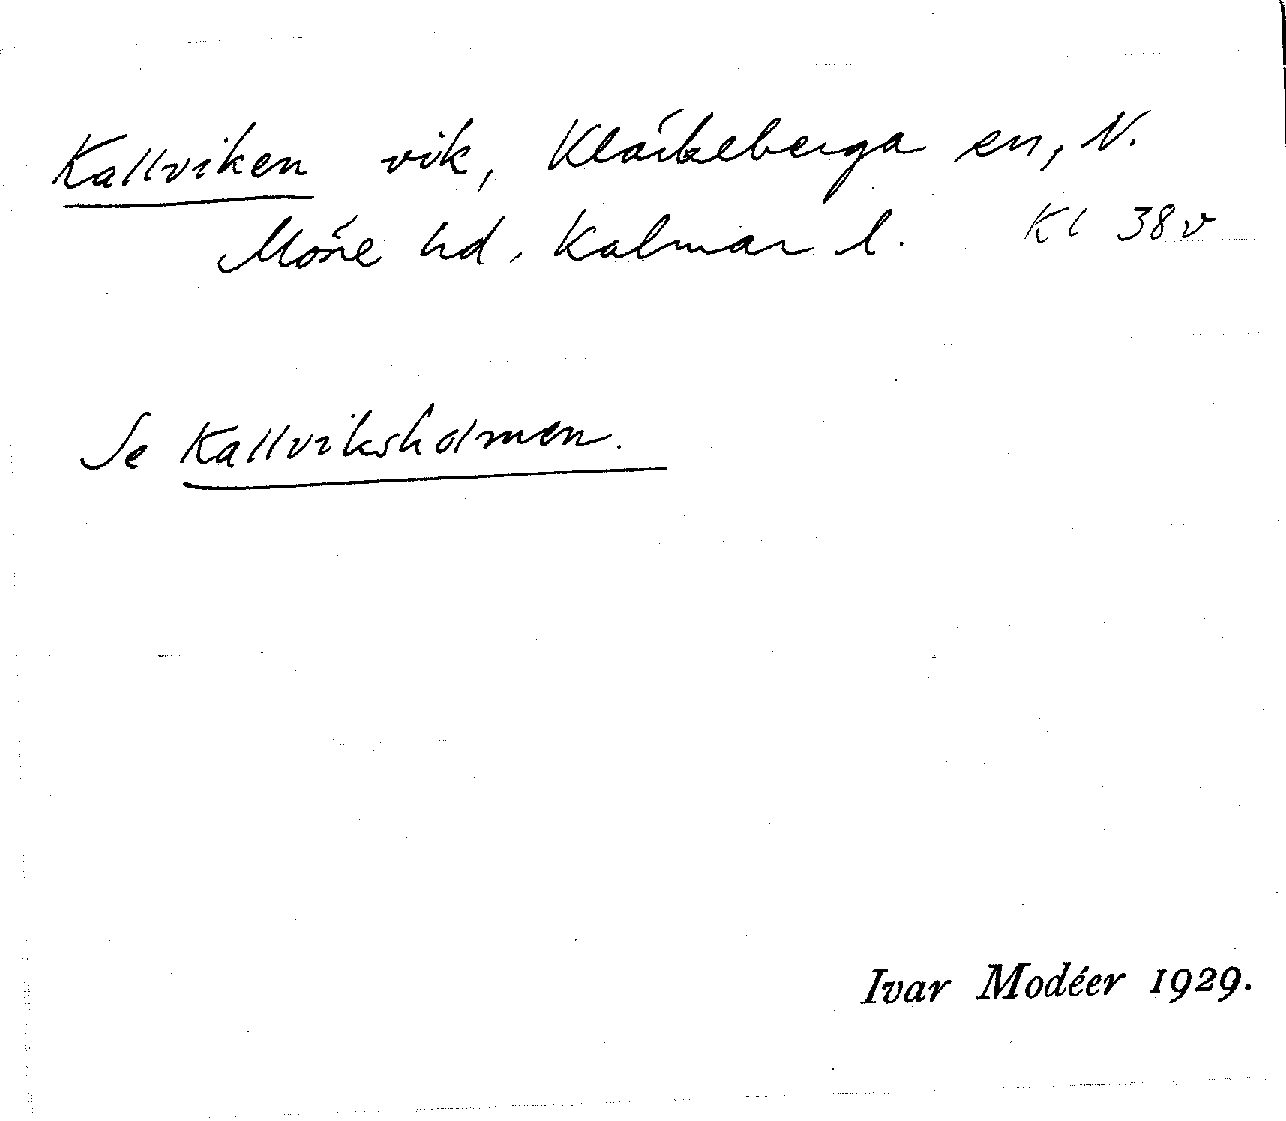 Kallviken vik, Kläckeberga sn, N.
Möre hd, Kalmar l. Kl 38v
Se Kallviksholmen.
Ivar Modéer 1929.